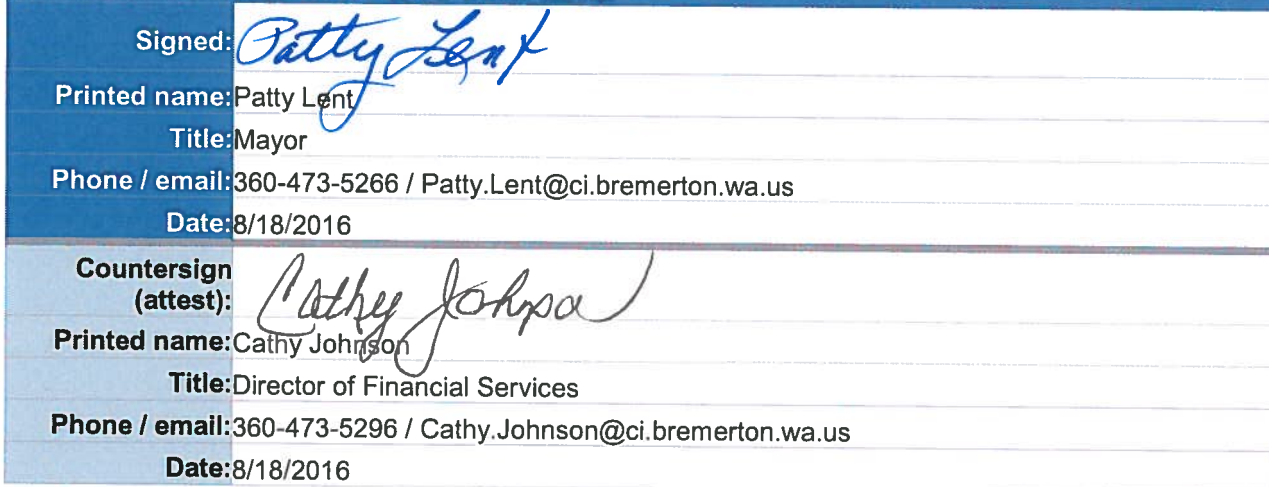 Signed: Patty Lent
Printed name: Patty Lent
Title: Mayor
Phone / email: 360-473-5266 / Patty.Lent@ci.bremerton.wa.us
Date: 8/18/2016
Countersign
(attest): Cathy Johnson
Printed name: Cathy Johnson
Title: Director of Financial Services
Phone / email: 360-473-5296 / Cathy.Johnson@ci.bremerton.wa.us
Date: 8/18/2016